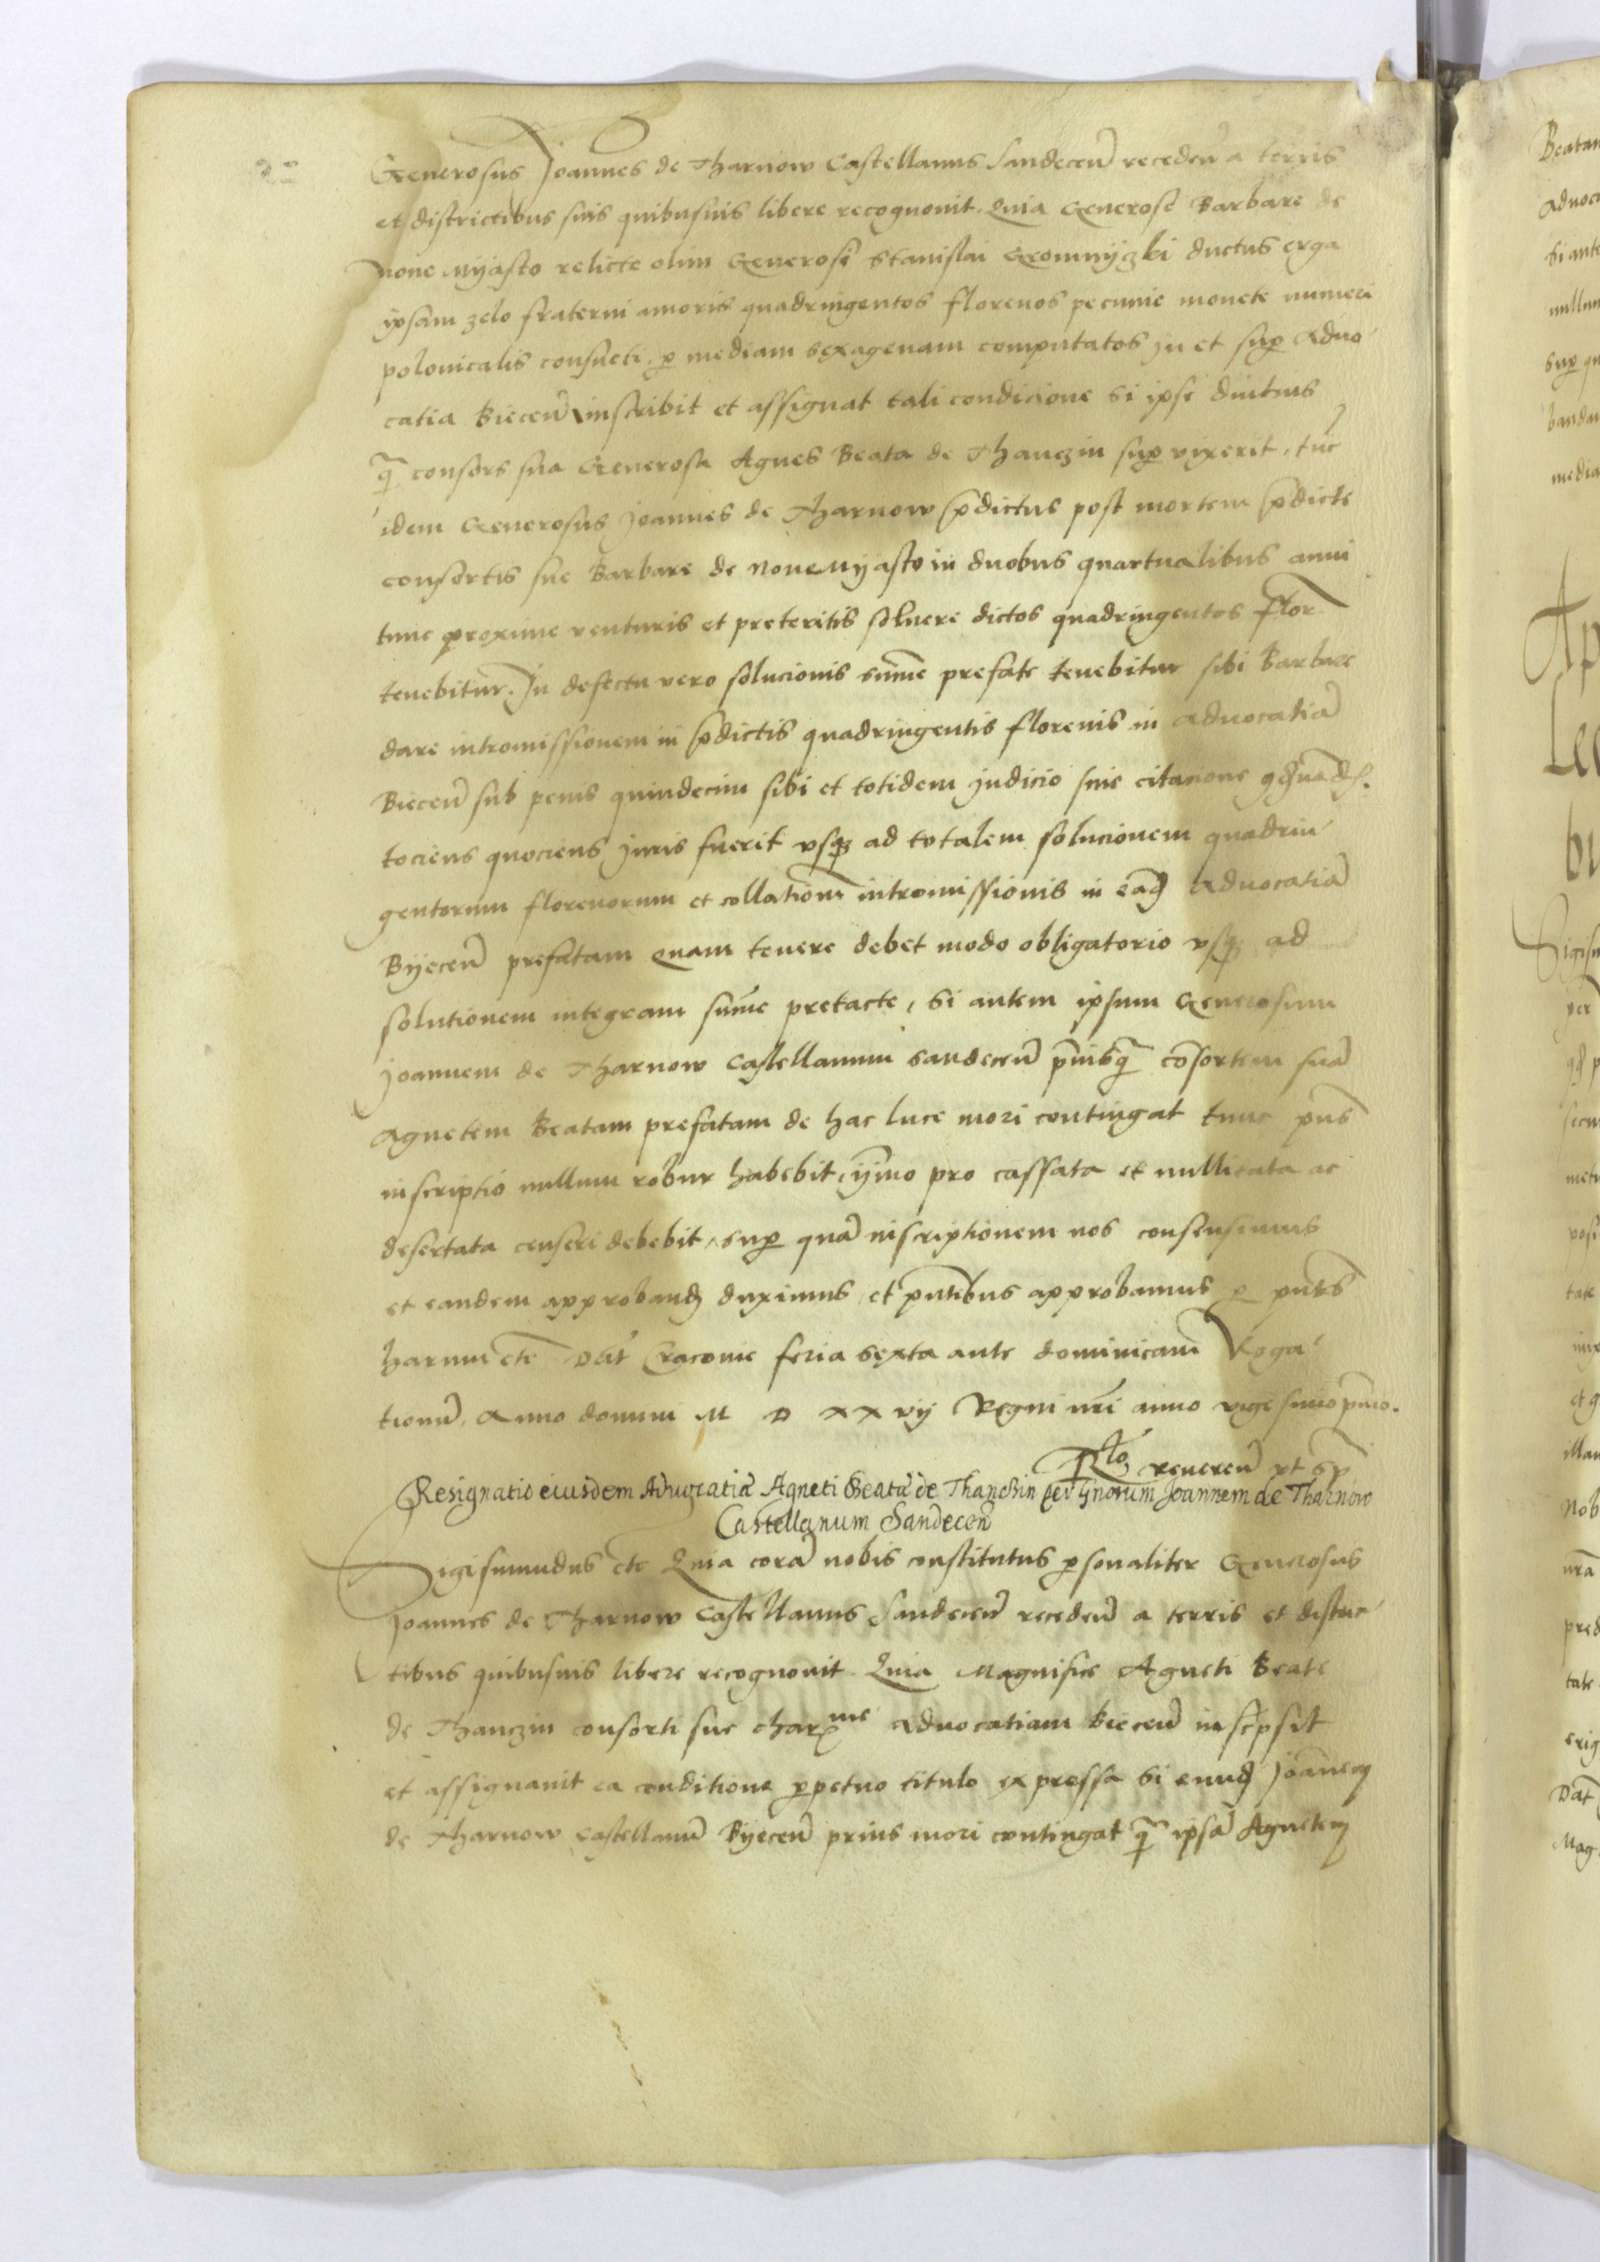 Generosus Joannes de Tharnow Castellanus Sandeceñ recedeñ a terris
et districtibus suis quibusuis libere recognouit. Quia Generose Barbare de
Noue Myasto relicte olim Generosi Stanislai Gromnyczki ductus erga
ipsam zelo fraterni amoris quadringentos florenos pecunie monete numeri
polonicalis consueti ꝑ mediam sexagenam computatos in et suꝑ Aduo
catia Bieceñ inscribit et assignat tali condicione si ipse diutius
q̃ consors sua Generosa Agnes Beata de Thanczin suꝑ vixerit, tũc
idem Generosus Joannes de Tharnow p̃dictus post mortem p̃dicte
consortis sue Barbare de Noue Myasto in duobus quartualibus anni
tunc proxime venturis et preteritis soluere dictos quadringentos flor
tenebitur. In defectu vero solucionis sum̃e prefate tenebitur sibi Barbare
dare intromissionem in p̃dictis quadringentis florenis in aduocatiã
Bieceñ sub penis quindecim sibi et totidem judicio sine citacione
tociens quociens juris fuerit vsqꝫ ad totalem solucionem quadrin
gentorum florenorum et collationẽ intromissionis in eãd Aduocatiã
Byeceñ prefatam quam tenere debet modo obligatorio vsqꝫ ad
solutionem integram sum̃e pretacte, Si autem ipsum Generosum
Joannem de Tharnow Castellanum Sandeceñ p̃iusq̃ cõsortem suã
Agnetem Beatam prefatam de hac luce mori contingat tunc p̃ns
inscriptio nullum robur habebit, ỹmo pro cassata et nullitata ac
desertata censeri debebit, suꝑ quã inscriptionem nos consensimus
et eandem approband duximus et p̃ntibus approbamus ꝑ p̃ntes
harum etc̃ Dat̃ Cracouie feria sexta ante dominicam Roga
tionũ. Anno domini M D XX vij Regni nr̃i anno vigesimo p̃mo.
Rto reuereñ vt sup̃
Resignatio eiusdem Aduocatiæ Agneti Beatæ de Thanchin per Gnorum Joannem de Tharnow
Castellanum Sandeceñ
Sigismundus etc̃ Quia corã nobis constitutus ꝑsonaliter Generosus
Joannes de Tharnow Castellanus Sandeceñ recedeñ a terris et distric
tibus quibusuis libere recognouit. Quia Magnifice Agneti Beate
de Thanczin consorti sue charme aduocatiam Bieceñ insc̃psit
et assignauit ea conditione ꝑpetuo titulo expressa Si eund Joãnem
de Tharnow Castellanũ Byeceñ prius mori contingat q̃ ipsã Agnetem